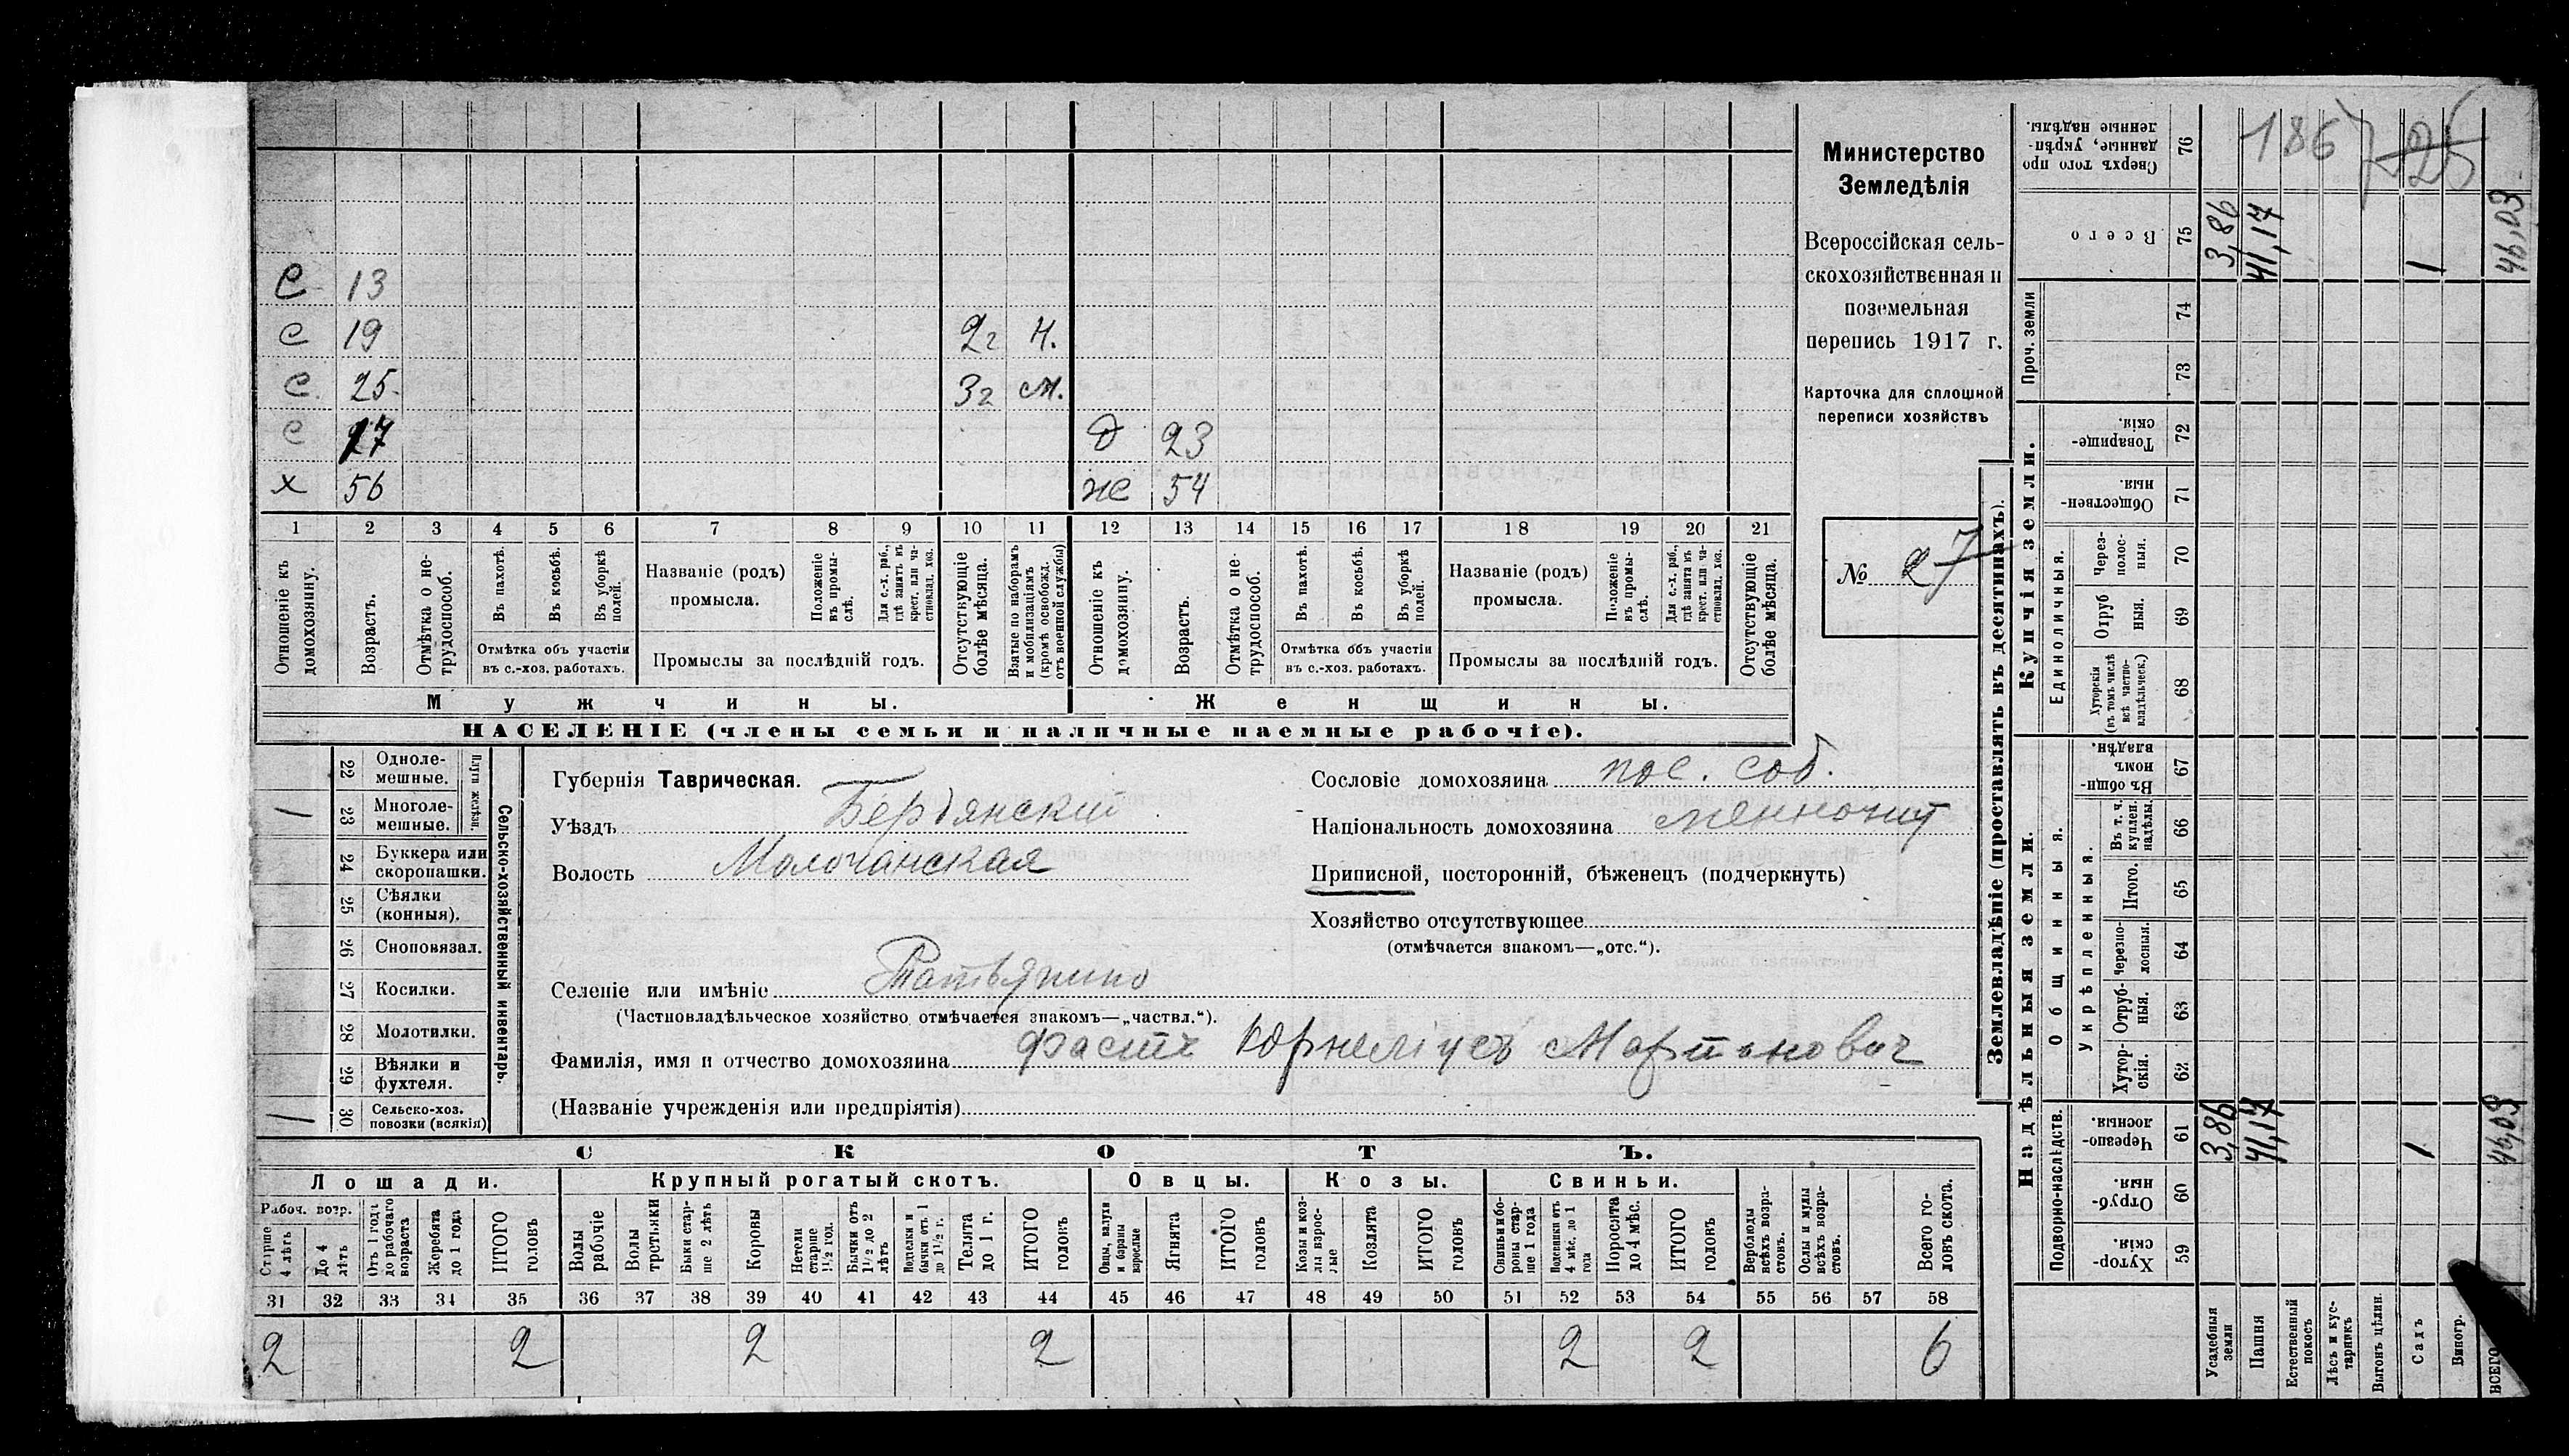 С 13
с 19 2г Н.
с 25 3г м.
с 27 д 23
х 56 же 54
1 2 3 4 5 6 7 8 9 10 11 12 13 14 15 16 17 18 19 20 21
Отношеніе къ домохозяину.
Возрастъ.
Отмѣтка о не-трудоспособ.
Въ пахотѣ.
Въ косьбѣ.
Въ уборкѣ полей.
Отмѣтка объ участіи въ с.-хоз. работахъ.
Названіе (родъ) промысла.
Положеніе въ промы-слѣ.
Для с.-х. раб., гдѣ занятъ въ крест. или ча-стновлад. хоз.
Промыслы за послѣдній годъ.
Отсутствующіе болѣе мѣсяца.
Взятые по наборамъ и мобилизаціямъ (кромѣ освобожд. отъ военной службы)
Отношеніе къ домохозяину.
Возрастъ.
Отмѣтка о не-трудоспособ.
Въ пахотѣ.
Въ косьбѣ.
Въ уборкѣ полей.
Отмѣтка объ участіи въ с.-хоз. работахъ.
Названіе (родъ) промысла.
Положеніе въ промы-слѣ.
Для с.-х. раб., гдѣ занята въ крест. или ча-стновлад. хоз.
Промыслы за послѣдній годъ.
Отсутствующіе болѣе мѣсяца.
Мужчины. Женщины.
НАСЕЛЕНІЕ (члены семьи и наличные наемные рабочіе).
Министерство
Земледѣлія
Всероссійская сель-
скохозяйственная и
поземельная
перепись 1917 г.
Карточка для сплошной
переписи хозяйствъ
№ 27
Сельско-хозяйственный инвентарь.
Плуги желѣзн.
22 Одноле-мешные.
/ 23 Многоле-мешные.
24 Буккера или скоропашки.
25 Сѣялки (конныя).
26 Сноповязал.
27 Косилки.
28 Молотилки.
29 Вѣялки и фухтеля.
/ 30 Сельско-хоз. повозки (всякія)
Губернія Таврическая.
Уѣздъ Бердянский
Волость Молочанская
Селеніе или имѣніе Татьянино
(Частновладѣльческое хозяйство отмѣчается знакомъ—„частвл.“).
Фамилія, имя и отчество домохозяина Фастъ Корнеліусъ Мартинович
(Названіе учрежденія или предпріятія)
Сословіе домохозяина пос. соб.
Національность домохозяина меннонит
Приписной, посторонній, бѣженецъ (подчеркнуть)
Хозяйство отсутствующее
(отмѣчается знакомъ—„отс.“).
СКОТЪ.
Лошади. Крупный рогатый скотъ. Овцы. Козы. Свиньи.
Рабоч. возр.
Старше 4 лѣтъ
До 4 лѣтъ
Отъ 1 года до рабочаго возраста
Жеребята до 1 года
ИТОГО головъ
Волы рабочіе
Волы третьяки
Быки стар-ше 2 лѣтъ
Коровы
Нетели старше 1½ год.
Бычки отъ 1½ до 2 лѣтъ
Подтелки и бычки отъ 1 до 1½ г.
Телята до 1 г.
ИТОГО головъ
Овцы, валухи и бараны взрослые
Ягнята
ИТОГО головъ
Козы и коз-лы взрос-лые
Козлята
ИТОГО головъ
Свиньи и бо-ровы стар-ше 1 года
Подсвинки отъ 4 мѣс. до 1 года
Поросята до 4 мѣс.
ИТОГО головъ
Верблюды всѣхъ возра-стовъ.
Ослы и мулы всѣхъ возра-стовъ.
Всего го-ловъ скота.
31 32 33 34 35 36 37 38 39 40 41 42 43 44 45 46 47 48 49 50 51 52 53 54 55 56 57 58
2 2 2 2 2 2 6
Землевладѣніе (проставлять въ десятинахъ).
Надѣльныя земли.
Подворно-наслѣдств.
Хутор-скія. 59
Отруб-ныя. 60
Черезпо-лосныя. 61
Общинныя.
Укрѣпленныя.
Хутор-скія. 62
Отруб-ныя. 63
Черезпо-лосныя. 64
Итого. 65
Въ т. ч. куплен. надѣлы. 66
Въ общин-номъ владѣн. 67
Купчія земли.
Единоличныя.
Хуторскія (въ томъ числѣ всѣ частно-владѣльческ.) 68
Отруб ныя. 69
Через-полос-ныя. 70
Обществен-ныя. 71
Товарище-скія. 72
Проч. земли
73
74
Всего 75
Сверхъ того про данные, укрѣп-ленные надѣлы. 76
Усадебныя земли 3,86 3,86
Пашня 41,17 41,17
Естественный покосъ
Лѣсъ и кус-тарникъ
Выгонъ цѣлин.
Садъ 1 1
Виногр.
ВСЕГО 46,03 46,03
1867
25